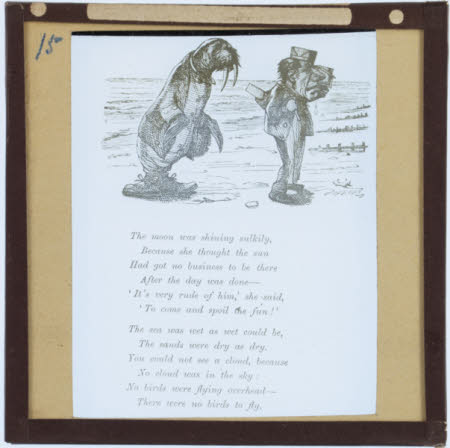 15
The moon was shining sulkily,
Because she thought the sun
Had got no business to be there
After the day was done—
'It's very rude of him,' she said,
'To come and spoil the fun!'
The sea was wet as wet could be,
The sands were dry as dry.
You could not see a cloud, because
No cloud was in the sky:
No birds were flying overhead—
There were no birds to fly.